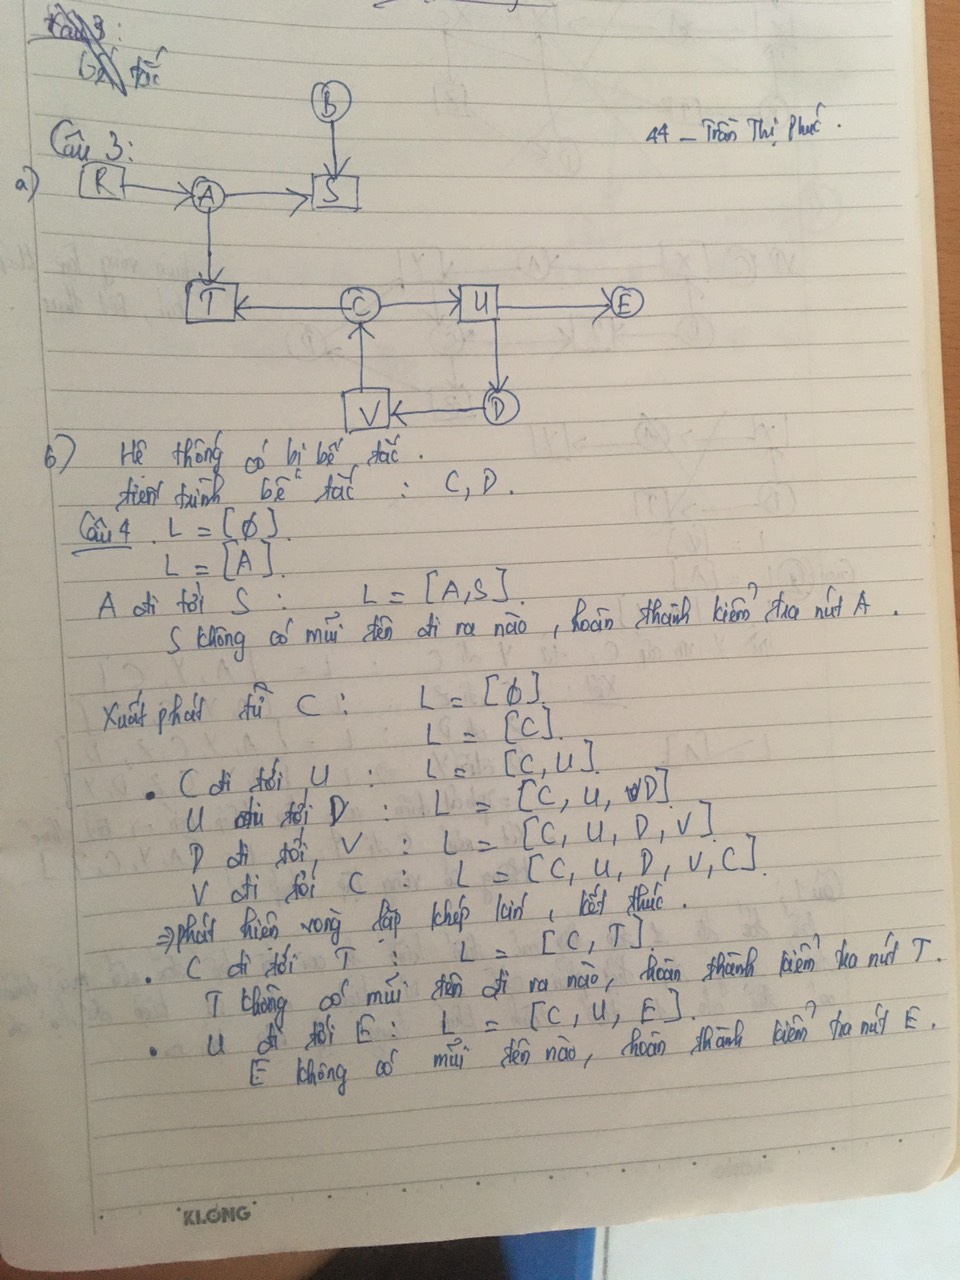 Câu 3:
Bế tắc
44 - Trần Thị Phúc.
Câu 3:
B
a) R A S
T C U E
V D
b) Hệ thống có bị bế tắc.
tiến trình bế tắc : C, D.
Câu 4. L = [ϕ].
L = [A].
A đi tới S : L = [A,S].
S không có mũi tên đi ra nào, hoàn thành kiểm tra nút A.
Xuất phát từ C : L = [ϕ].
L = [C].
• C đi tới U : L = [C, U].
U đi tới D : L = [C, U, D]
D đi tới V : L = [C, U, D, V].
V đi tới C : L = [C, U, D, V, C].
⇒ phát hiện vòng lặp khép kín, kết thúc.
• C đi tới T : L = [C, T].
T không có mũi tên đi ra nào, hoàn thành kiểm tra nút T.
• U đi tới E : L = [C, U, E].
E không có mũi tên nào, hoàn thành kiểm tra nút E.
KLONG